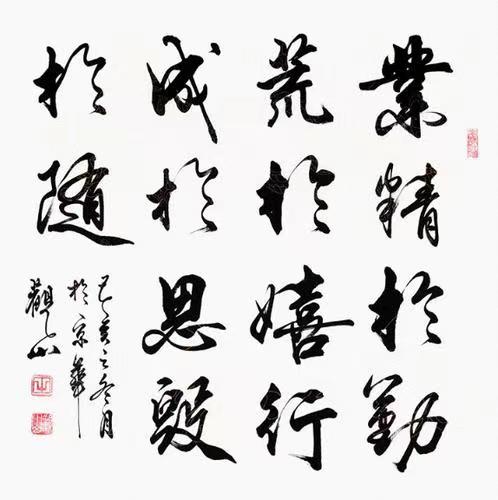 業精於勤
荒於嬉行
成於思毀
於隨
己亥之冬月
於京華
觀山